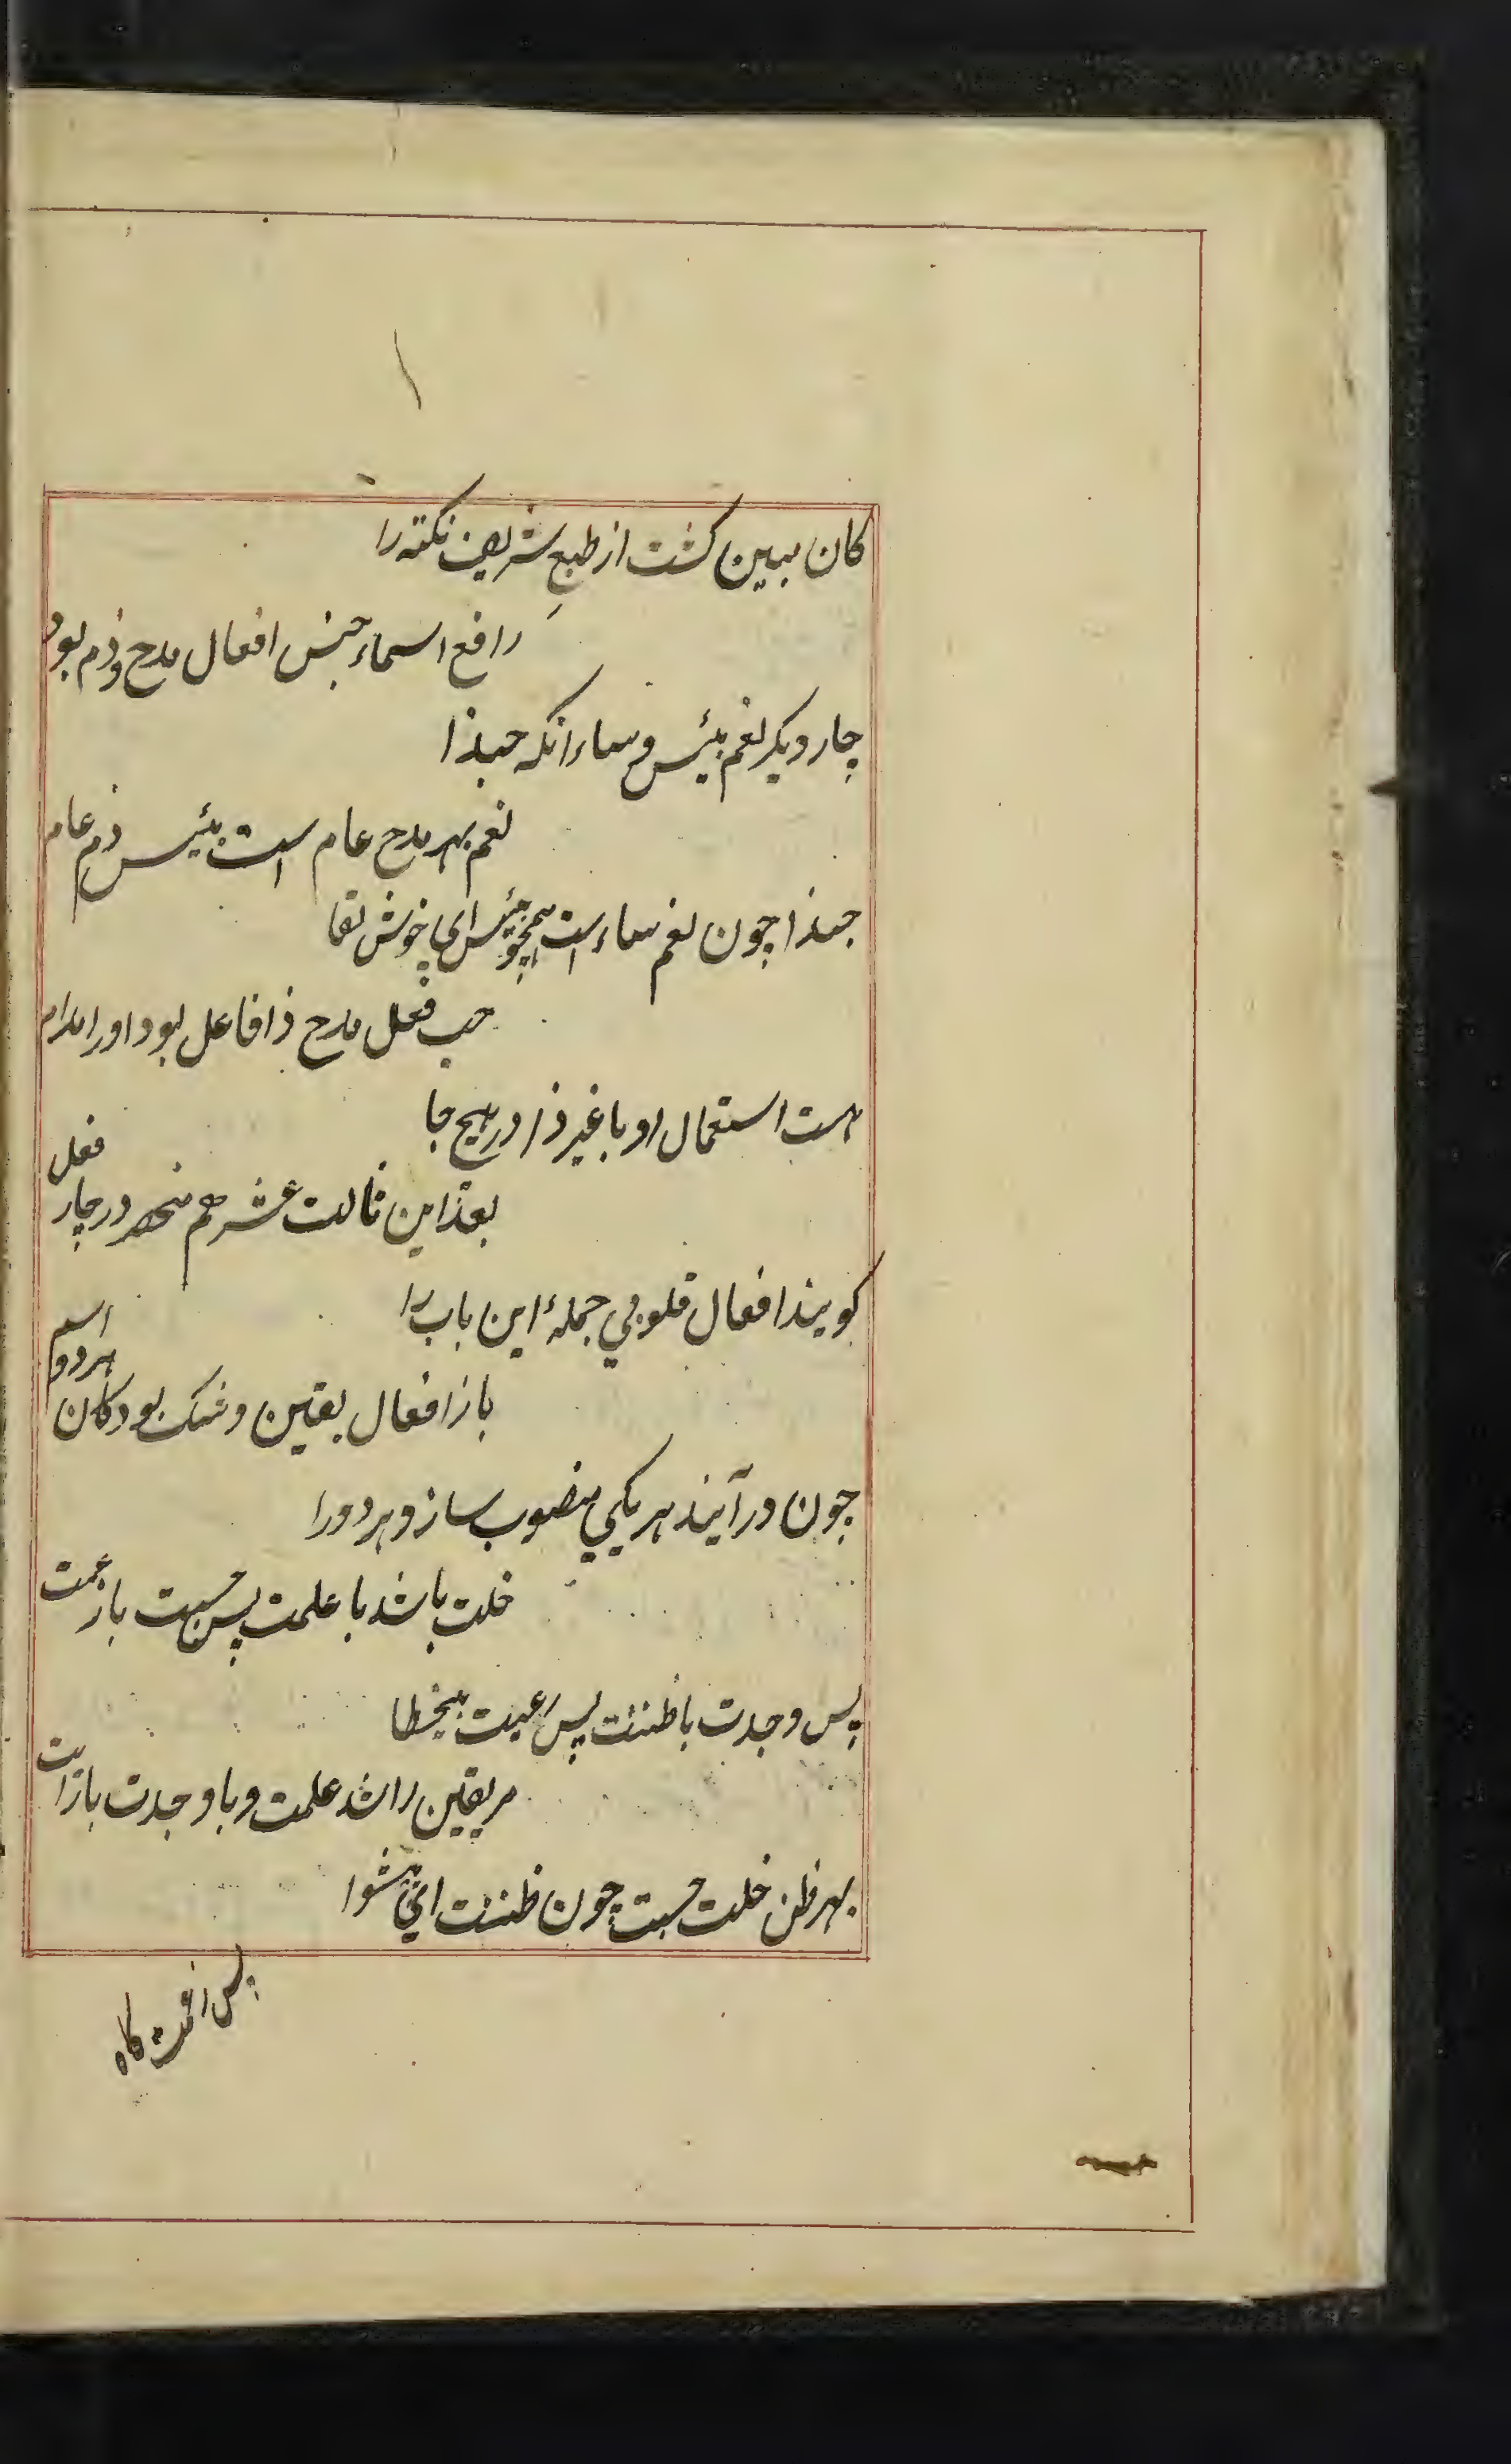 کان مبین کشت از طبع شریف نکته را
رافع اسماء جنس افعال مدح و ذم بود
چار دیکر نعم بئیس و ساء انکه حبذا
نعم بهر مدح عام است بئیس ذم عام
حبذا چون نعم ساء است همچو بئیس ای خوش لقا
حب فعل مدح ذا فاعل بود او را مدام
هست استعمال او با غیر ذا در هیچ جا
بعد ازین ثالث عشر هم منحصر در چار فعل
کویند افعال قلوبی جملۀ این باب را
باز افعال یقین و شک بود کان هر دو اسم
چون در آیند هر یکی منصوب سازد هر دو را
خلت باشد با علمت پس حسبت باز عمت
پس وجدت با ظننت پس رعیت بیخطا
مر یقین را شد علمت و با وجدت بازایت
بهر ظن خلت حسبت چون ظننت ای پیشوا
پس زعمت کاه